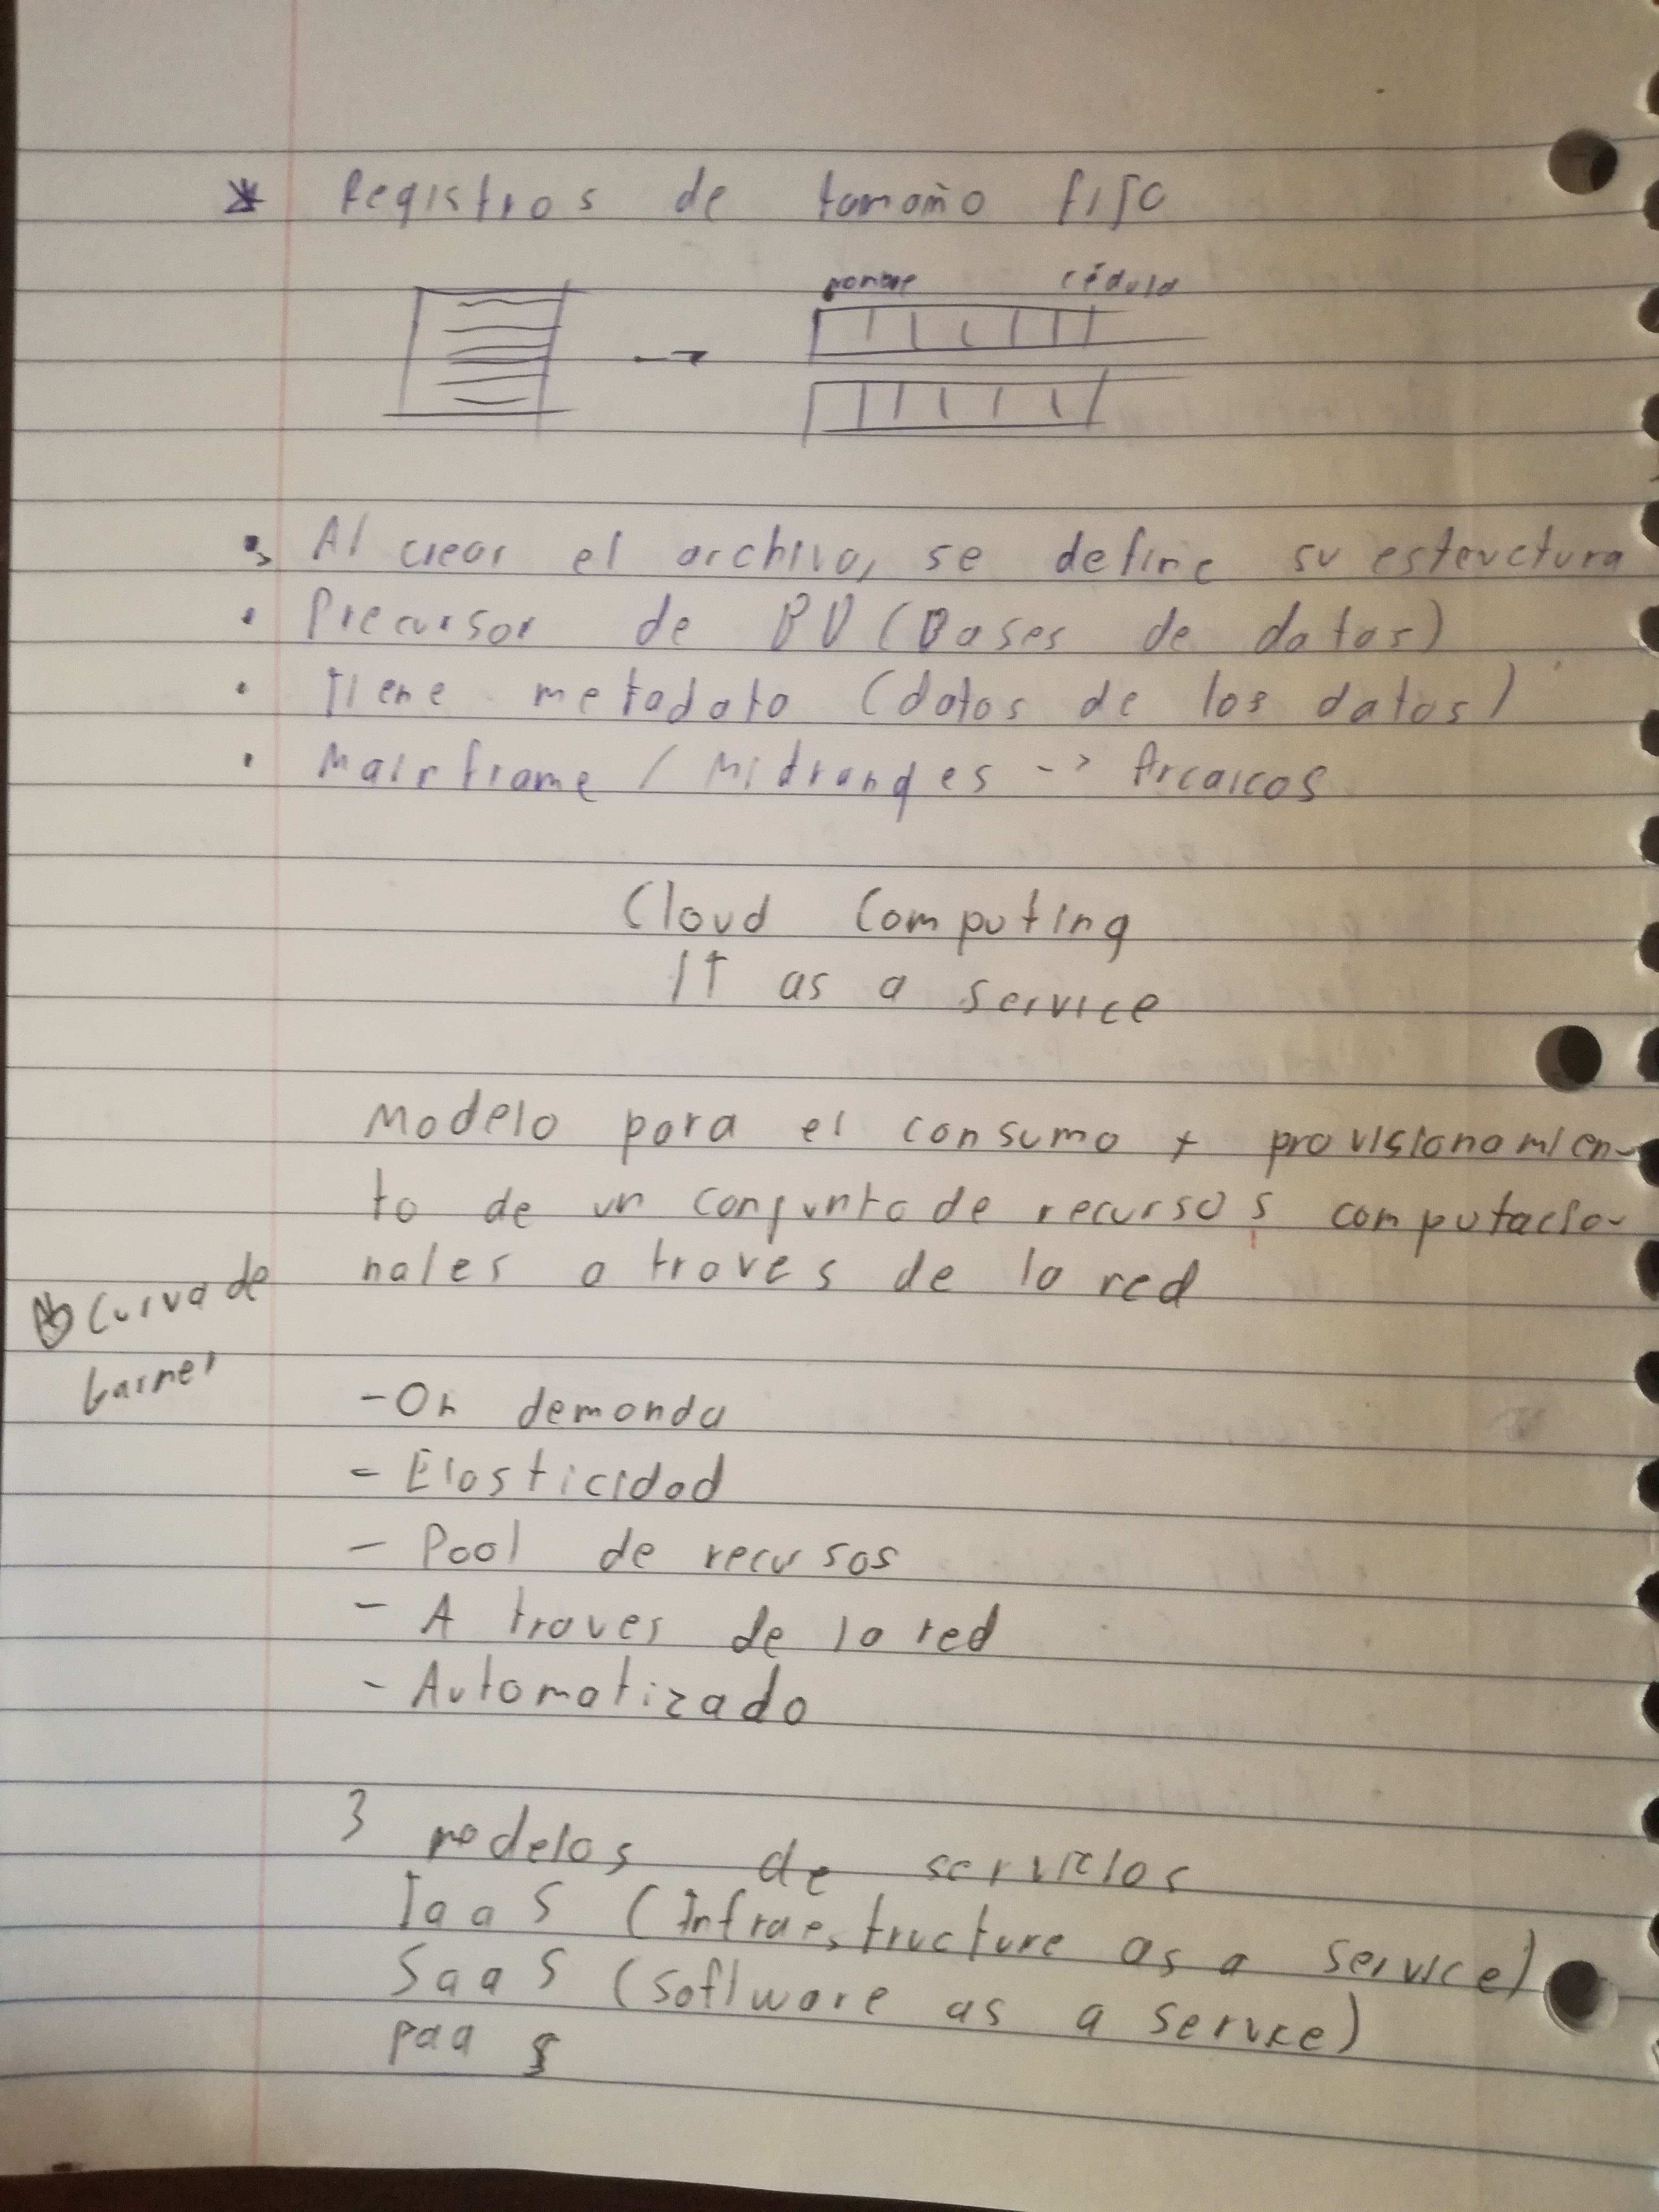 * Registros de tamaño fijo
nombre cédula
• Al crear el archivo, se define su estructura
• Precursor de BD (Bases de datos)
• Tiene metadato (datos de los datos)
• Mainframe / Midranges -> Arcaicos
Cloud Computing
IT as a service
Modelo para el consumo y provisionamien-
to de un conjunto de recursos computacio-
nales a traves de la red
Curva de
Garner
- On demanda
- Elasticidad
- Pool de recursos
- A traves de la red
- Automatizado
3 modelos de servicios
IaaS (Infraestructure as a service)
SaaS (Software as a service)
paas